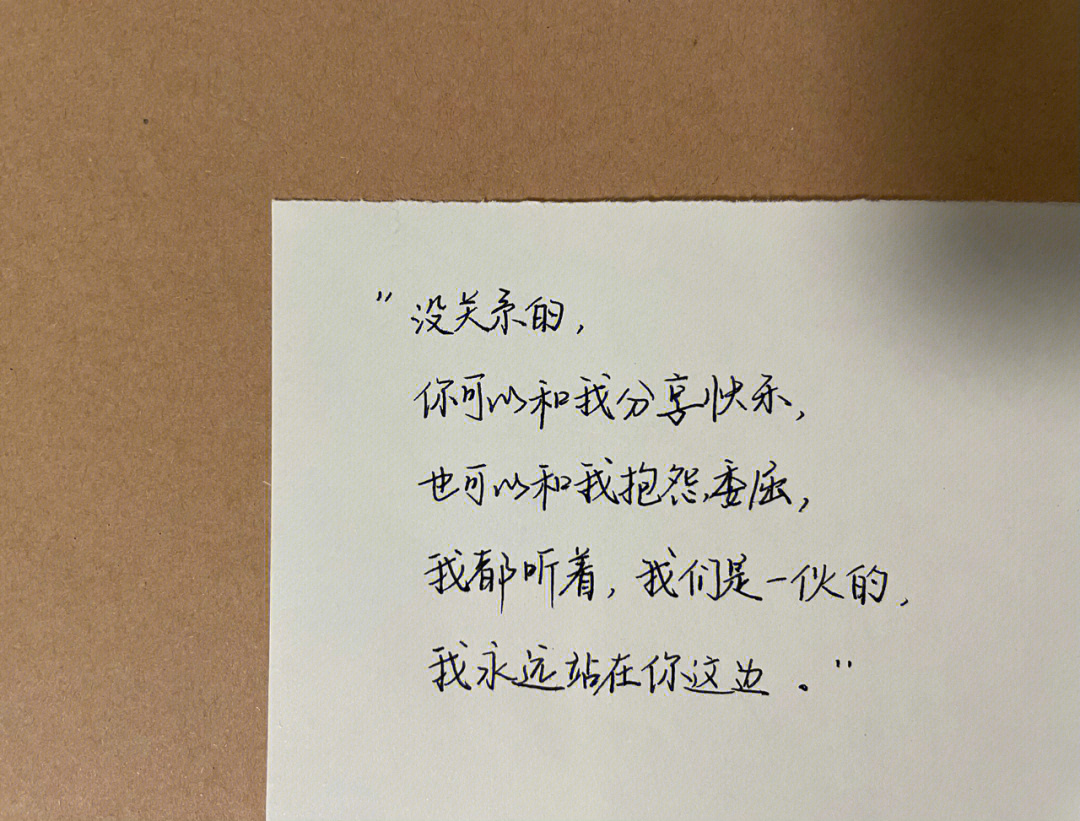 "没关系的,
你可以和我分享快乐,
也可以和我抱怨委屈,
我都听着,我们是一伙的,
我永远站在你这边。"